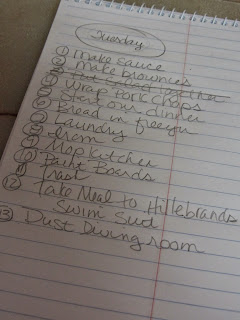 Tuesday
① make sauce
② make brownies
③ Put Salad Together
④ Wrap Pork Chops
⑤ Get our dinner
⑥ Bread in freezer
⑦ Laundry
⑧ Iron
⑨ Mop Kitchen
⑩ Paint Boards
⑪ Trash
⑫ Take Meal to Hillebrands
Swim Suit
⑬ Dust Dining room